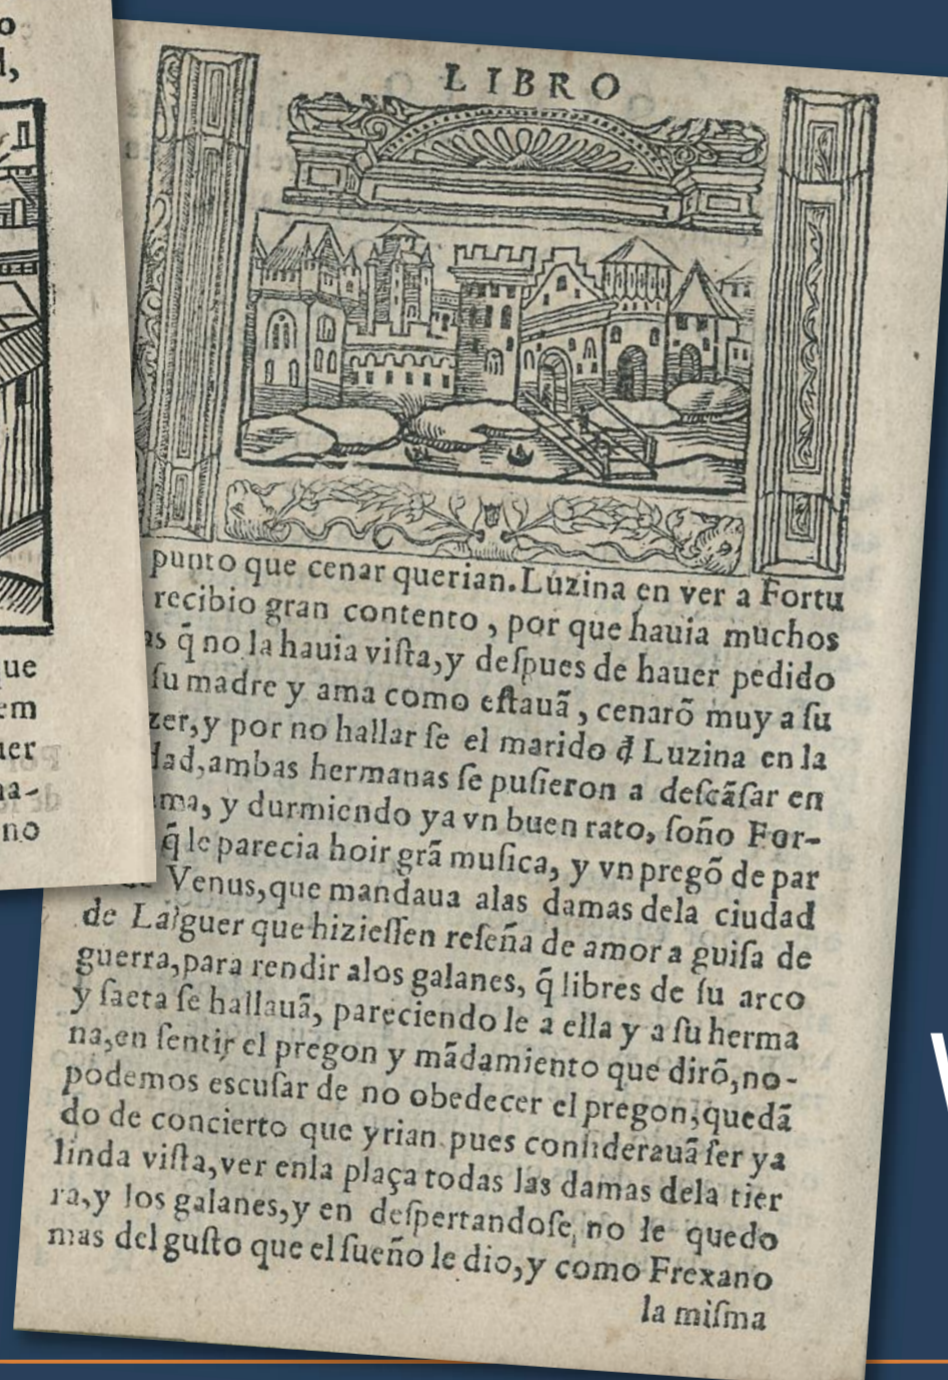 o
l,
ue
em
uer
na-
no
LIBRO
punto que cenar querian. Luzina en ver a Fortu
recibio gran contento, por que hauia muchos
as q̃ no la hauia viſta, y deſpues de hauer pedido
ſu madre y ama como eſtauã, cenarõ muy a ſu
zer, y por no hallar ſe el marido đ Luzina en la
dad, ambas hermanas ſe puſieron a deſcãſar en
ma, y durmiendo ya vn buen rato, ſoño For-
q̃ le parecia hoir grã muſica, y vn pregõ de par
de Venus, que mandaua alas damas dela ciudad
de Lalguer que hizieſſen reſeña de amor a guiſa de
guerra, para rendir alos galanes, q̃ libres de ſu arco
y ſaeta ſe hallauã, pareciendo le a ella y a ſu herma
na, en ſentir el pregon y mãdamiento que dirõ, no-
podemos escuſar de no obedecer el pregon, quedã
do de concierto que yrian pues conſiderauã ſer ya
linda viſta, ver enla plaça todas las damas dela tier
ra, y los galanes, y en deſpertandoſe, no le quedo
mas del guſto que el ſueño le dio, y como Frexano
la miſma